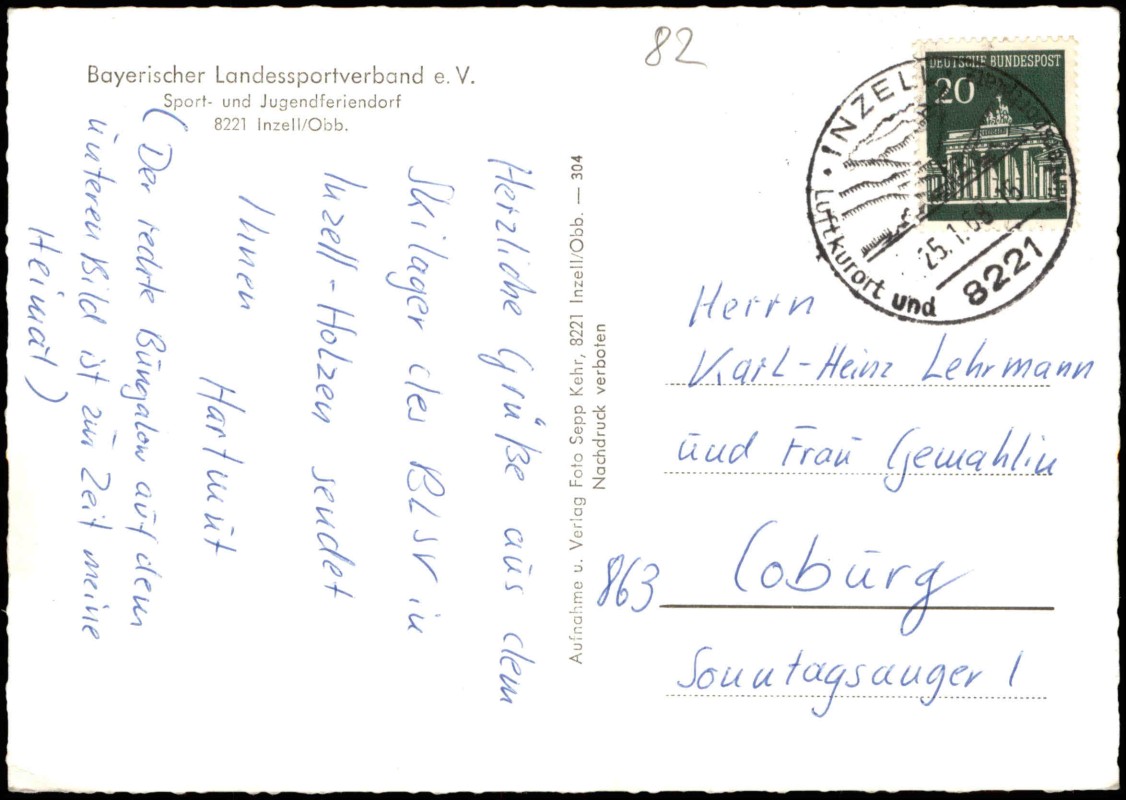 82
Bayerischer Landessportverband e. V.
Sport- und Jugendferiendorf
8221 Inzell/Obb.
Herzliche Grüße aus dem
Skilager des BLSV in
Inzell-Holzen sendet
Ihnen
Hartmut
(Der rechte Bungalow auf dem
unteren Bild ist zur Zeit meine
Heimat)
Aufnahme u. Verlag Foto Sepp Kehr, 8221 Inzell/Obb. — 304
Nachdruck verboten
DEUTSCHE BUNDESPOST
20
INZELL
Luftkurort und
25.1.68-15
8221
Herrn
Karl-Heinz Lehrmann
und Frau Gemahlin
863 Coburg
Sonntagsanger 1